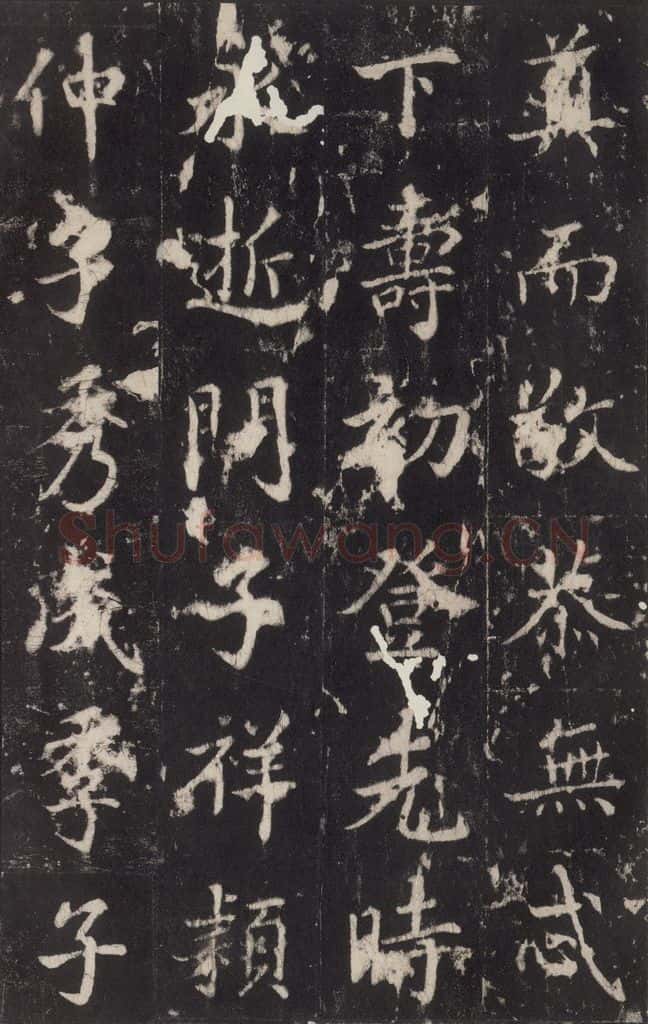 而敬恭無忒
下壽初登先時
逝門子祥
伸字秀成季子
Shufawang.CN